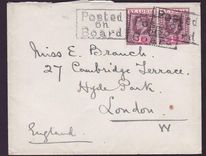 Posted
on
Board
ST. LUCIA
Miss E. Branch.
27 Cambridge Terrace.
Hyde Park.
London.
W
England